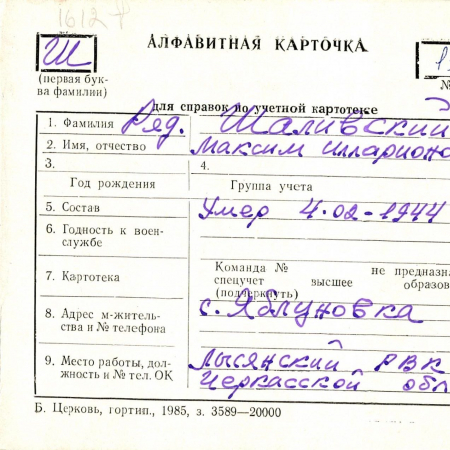 1612
АЛФАВИТНАЯ КАРТОЧКА
Ш
(первая бук-
ва фамилии)
№
для справок по учетной картотеке
1. Фамилия Ряд. Шаливский
2. Имя, отчество Максим Илларионо
3.
4.
Год рождения
Группа учета
5. Состав Умер 4.02-1944
6. Годность к воен-
службе
Команда № не предназна
7. Картотека спецучет высшее образов
(подчеркнуть)
8. Адрес м-житель-
ства и № телефона с. Яблуновка
9. Место работы, дол-
жность и № тел. ОК Лысянский РВК
Черкасской обл
Б. Церковь, гортип., 1985, з. 3589—20000